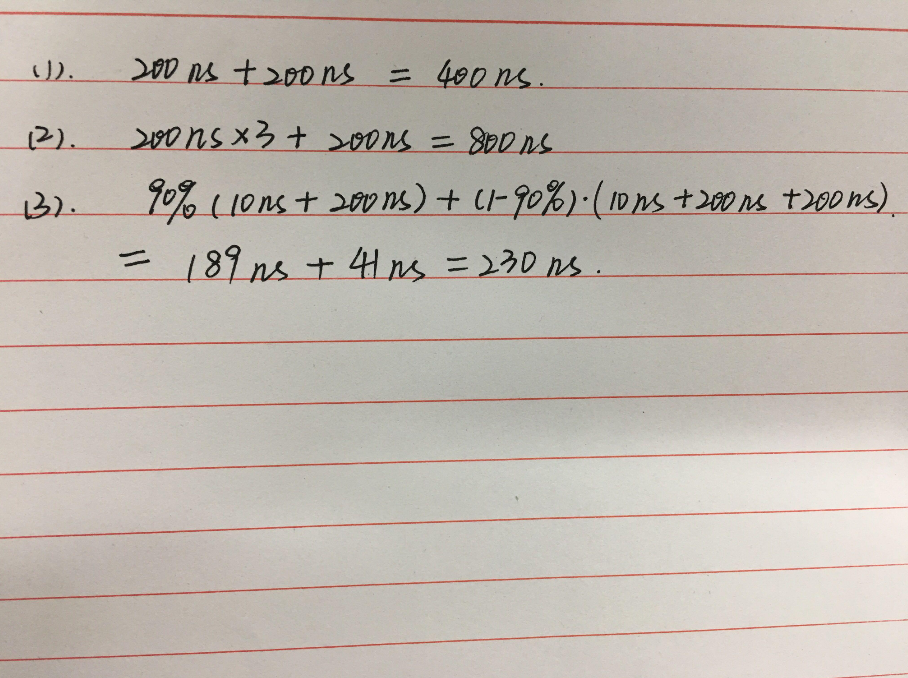 (1). 200 ns + 200 ns = 400 ns.
(2). 200 ns × 3 + 200 ns = 800 ns
(3). 90% (10 ns + 200 ns) + (1-90%)·(10 ns + 200 ns + 200 ns).
= 189 ns + 41 ns = 230 ns.